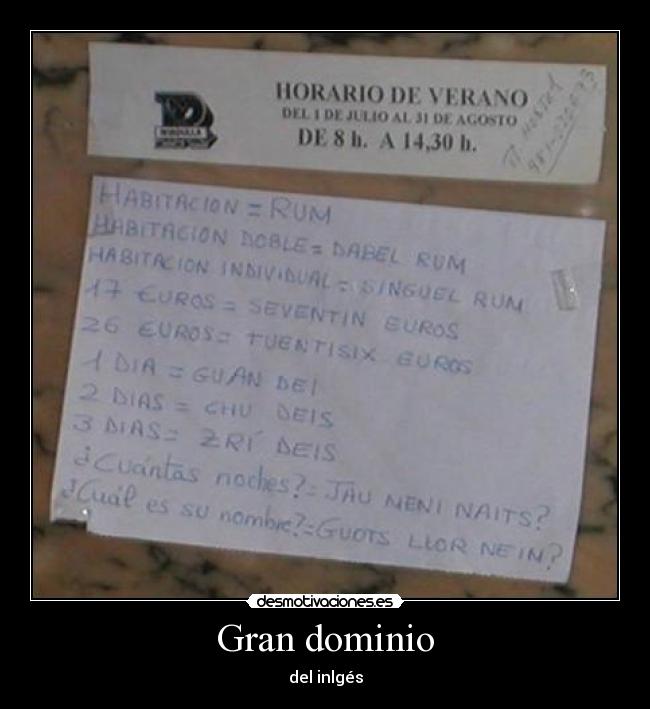 HORARIO DE VERANO
DEL 1 DE JULIO AL 31 DE AGOSTO
DE 8 h. A 14,30 h.
HABITACION = RUM
HABITACION DOBLE = DABEL RUM
HABITACION INDIVIDUAL = SINGUEL RUM
17 EUROS = SEVENTIN EUROS
26 EUROS = TUENTISIX EUROS
1 DIA = GUAN DEI
2 DIAS = CHU DEIS
3 DIAS = ZRÍ DEIS
¿Cuántas noches? = JAU MENI NAITS?
¿Cuál es su nombre? = GUOTS LLOR NEIM?
desmotivaciones.es
Gran dominio
del inlgés